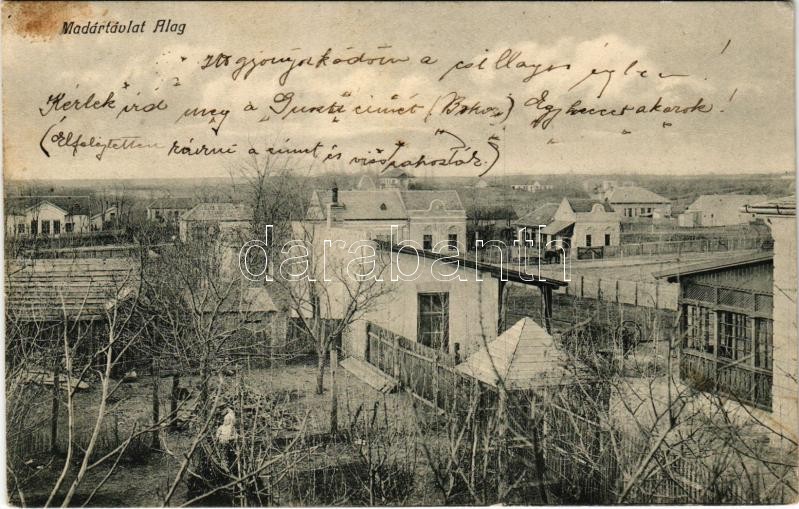 Madártávlat Alag
gyönyörködöm a csillagos égben!
Kérlek írd meg a Guszti címét Egyheset akarok!
(Elfelejtettem ráírni a címet és visszahozták.)
darabanth